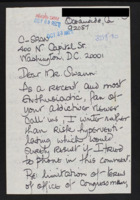 92057
C-SPAN
400 N Capitol St
Washington, D.C. 20001
Dear Mr Swann
As a recent and most
Enthusiastic fan of
your addictive Viewer
Call us I write rather
than Risk hyperventi-
lating which would
surely result if I tried
to phone in this comment.
Re limitation of terms
of office of congressmen,